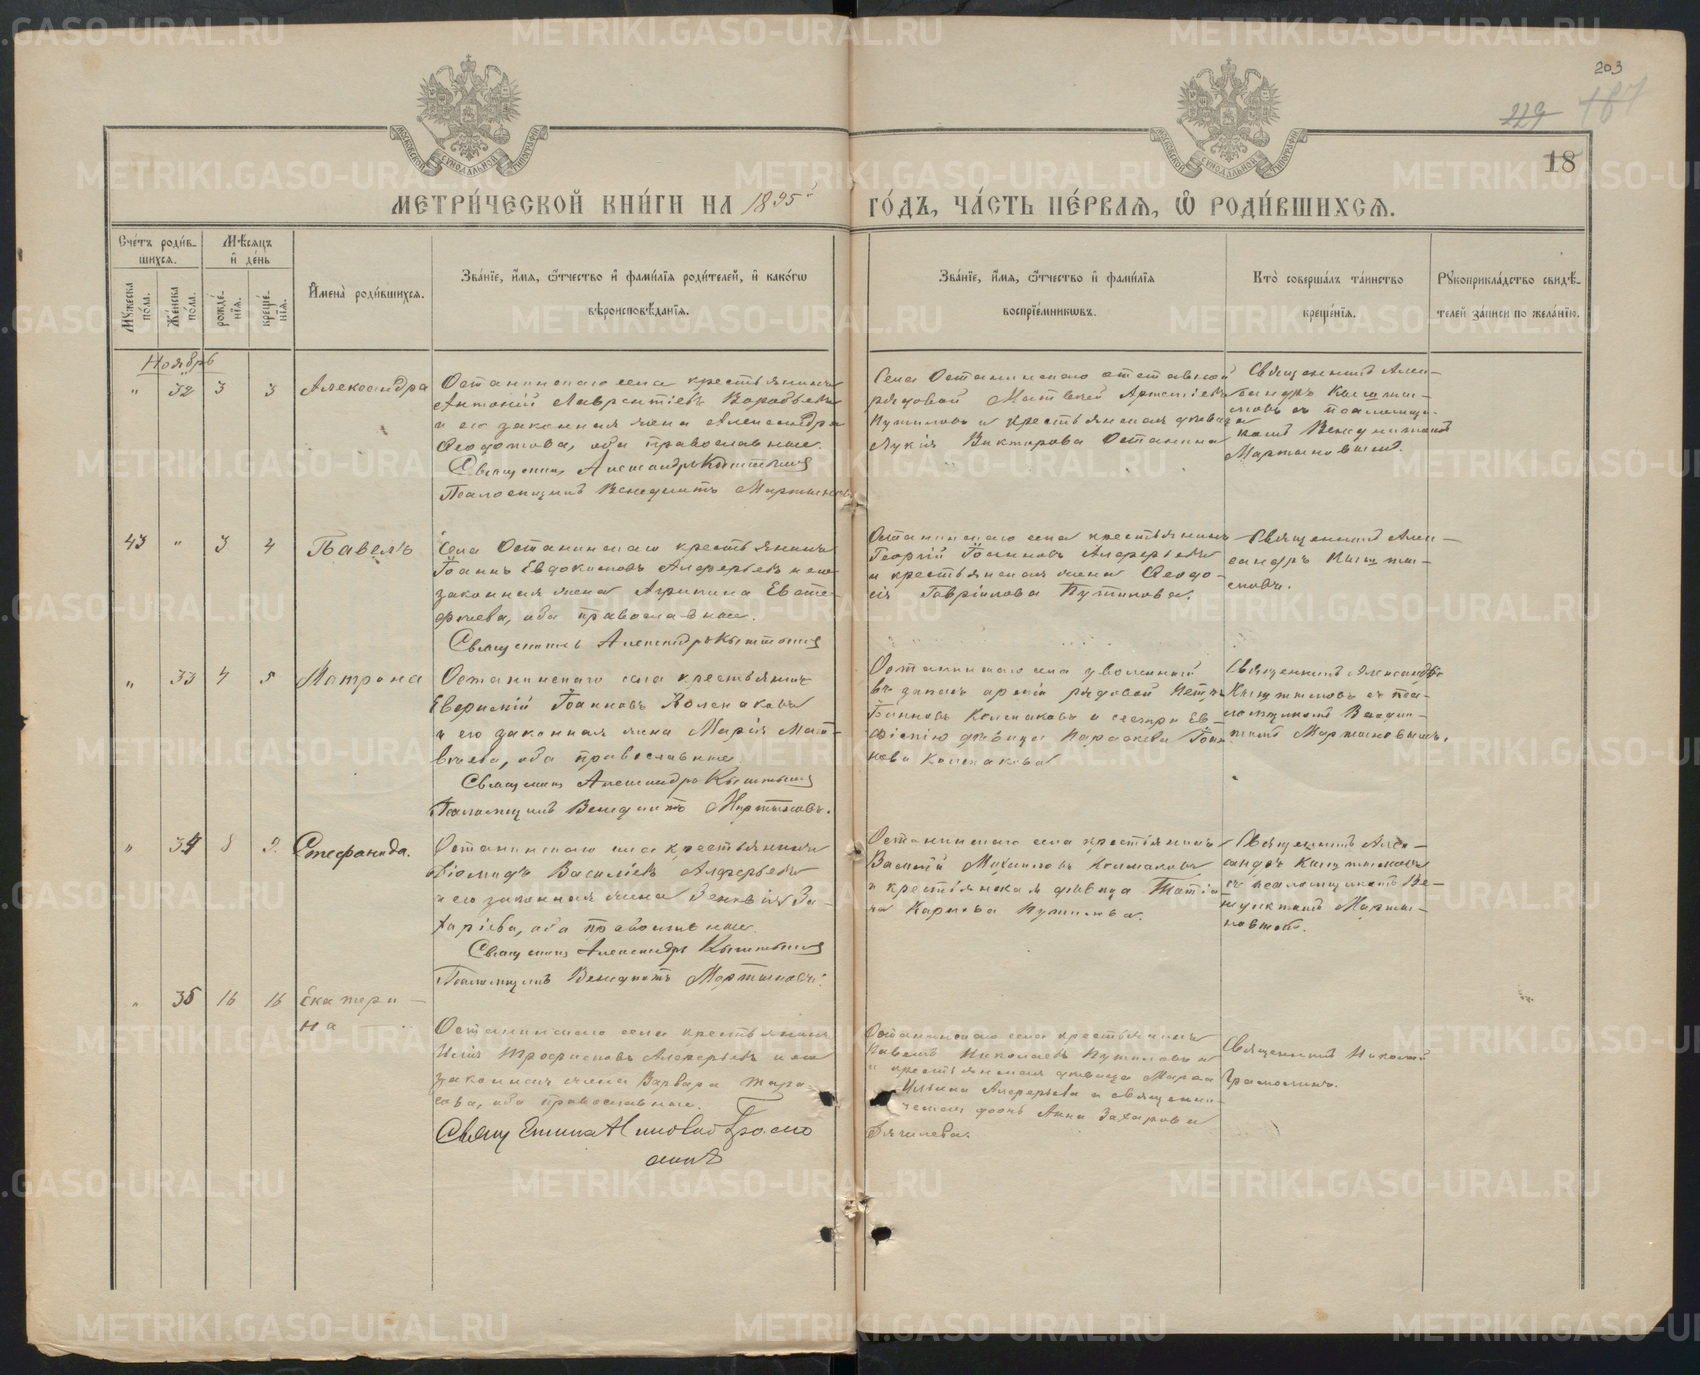 203
229 187
18
МОСКОВСКОЙ СѴНОДАЛЬНОЙ ТИПОГРАФІИ
МОСКОВСКОЙ СѴНОДАЛЬНОЙ ТИПОГРАФІИ
МЕТРИ́ЧЕСКОЙ КНИ́ГИ НА 1895
ГО́ДЪ, ЧА́СТЬ ПЕ́РВАЯ, Ѡ РОДИ́ВШИХСЯ.
Сче́тъ роди́в-
шихся.
Мѣ́сяцъ
и де́нь
Мꙋ́жеска по́ла.
Же́нска по́ла.
рожде́-нїя.
креще́-нїя.
Имена̀ роди́вшихся.
Зва́нїе, и́мя, ѻ́тчество и фами́лїя роди́телей, и како́гѡ
вѣроисповѣ́данїя.
Зва́нїе, и́мя, ѻ́тчество и фами́лїя
воспрїе́мникѡвъ.
Кто̀ соверша́лъ та́инство
креще́нїя.
Рꙋкоприкла́дство свидѣ́-
телей за́писи по жела́нїю.
Ноябрь
" 32 3 3 Александра
Останинскаго села крестьянинъ
Антоній Лаврентіевъ Воробьевъ
и его законная жена Александра
Ѳеодотова, оба православные.
Священникъ Александръ Кыштымовъ
Псаломщикъ Венедиктъ Мартыновъ
Села Останинскаго отставной
рядовой Матвей Артеміевъ
Путиловъ и крестьянская девица
Лукія Викторова Останина
Священникъ Алек-
сандръ Кышты-
мовъ съ псаломщи-
комъ Венедиктомъ
Мартыновымъ.
43 " 3 4 Павелъ
Села Останинскаго крестьянинъ
Іоаннъ Евдокимовъ Алферьевъ и его
законная жена Агрипина Евста-
фиева, оба православные.
Священникъ Александръ Кыштымовъ
Останинскаго села крестьянинъ
Георгій Іоанновъ Алферьевъ
и крестьянская жена Ѳеодо-
сія Гавріилова Путилова.
Священникъ Алек-
сандръ Кышты-
мовъ.
" 33 4 5 Матрона
Останинскаго села крестьянинъ
Іоанновъ Колмаковъ
и его законная жена Марія Мат-
веева, оба православные
Священникъ Александръ Кыштымовъ
Псаломщикъ Венедиктъ Мартыновъ.
Останинскаго села уволенный
въ запасъ арміи рядовой Петръ
Іоанновъ Колмаковъ и сестра Ев-
девица Параскева Іоан-
нова Колмакова
Священникъ Александръ
Кыштымовъ съ пса-
ломщикомъ Венедик-
томъ Мартыновымъ.
" 34 8 9. Стефанида.
Останинскаго села крестьянинъ
Діомидъ Василіевъ Алферьевъ
и его законная жена Зеновія За-
харіева, оба православные.
Священникъ Александръ Кыштымовъ
Псаломщикъ Венедиктъ Мартыновъ.
Останинскаго села крестьянинъ
Василій Михаиловъ Колмаковъ
и крестьянская девица Татіа-
на Карпова Путилова.
Священникъ Алек-
сандръ Кыштымовъ
съ псаломщикомъ Ве-
недиктомъ Марты-
новымъ.
" 35 16 16 Екатери-
на
Останинскаго села крестьянинъ
Илія Трофимовъ Алферьевъ и его
законная жена Варвара Тара-
сова, оба православные.
Священникъ Николай Громо-
Останинскаго села крестьянинъ
Павелъ Николаевъ Путиловъ и
и крестьянская девица Марѳа
Ильина Алферьева и священни-
ческая дочь Анна Захарова
Священникъ Николай